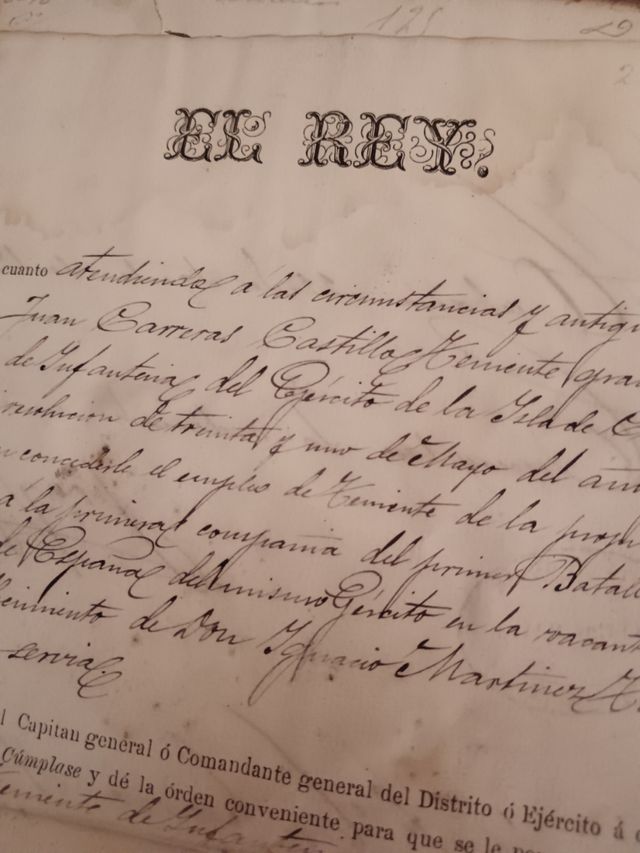 125
EL REY.
cuanto atendiendo á las circunstancias y antigü
Juan Carreras Castillo, Teniente gra
de Infanteria del Ejército de la Isla de C
resolucion de treinta y uno de Mayo del
concederle el empleo de Teniente de la prop
á la primera compañia del primer Batall
de España del mismo Ejército en la vacant
de Don Ignacio Martinez
servia
l Capitan general ó Comandante general del Distrito ó Ejército á
Cúmplase y dé la órden conveniente para que se le
Teniente de Infanteria